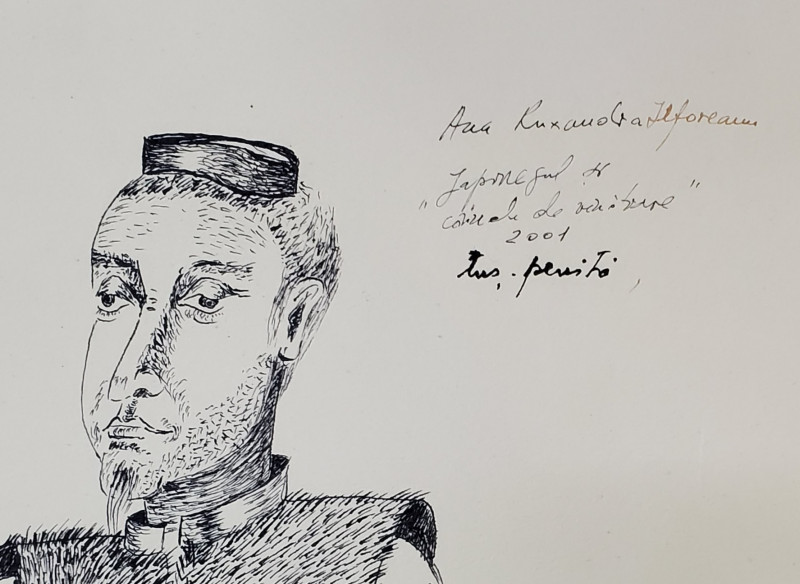 Ana Ruxandra Ilfoveanu
"Japonezul și
câinele de vânătoare"
2001
tuș, peniță